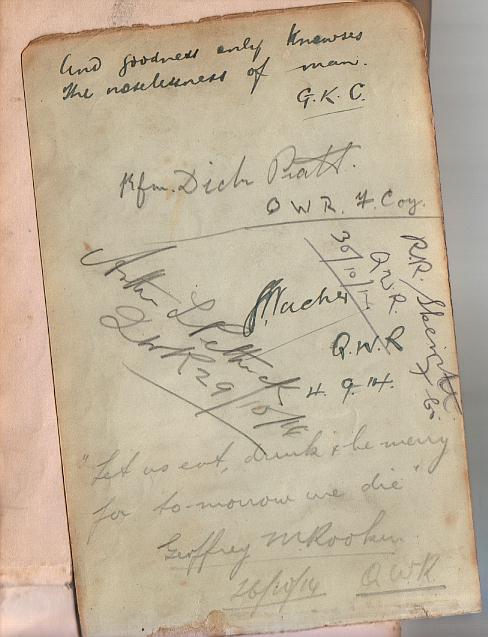 And goodness only Knowses
The noselessness of man.
G.K.C.
Rfm. Dick Pratt.
Q W R. F. Coy.
Arthur L
QWR 29/10/14
30/10/14
Q.W.R.
R.R.
Q.W.R
4. 9. 14.
"Let us eat, drink & be merry
for to-morrow we die"
Geoffrey M Rooken
26/10/14 QWR